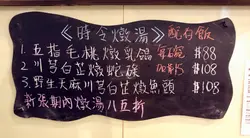 《時令燉湯》 配白飯
1. 五指毛桃燉乳鴿 每石碗 $88
2. 川芎白芷燉蛇羹 $108
3. 野生天麻川芎白芷燉魚頭 $108
新張期內燉湯八五折